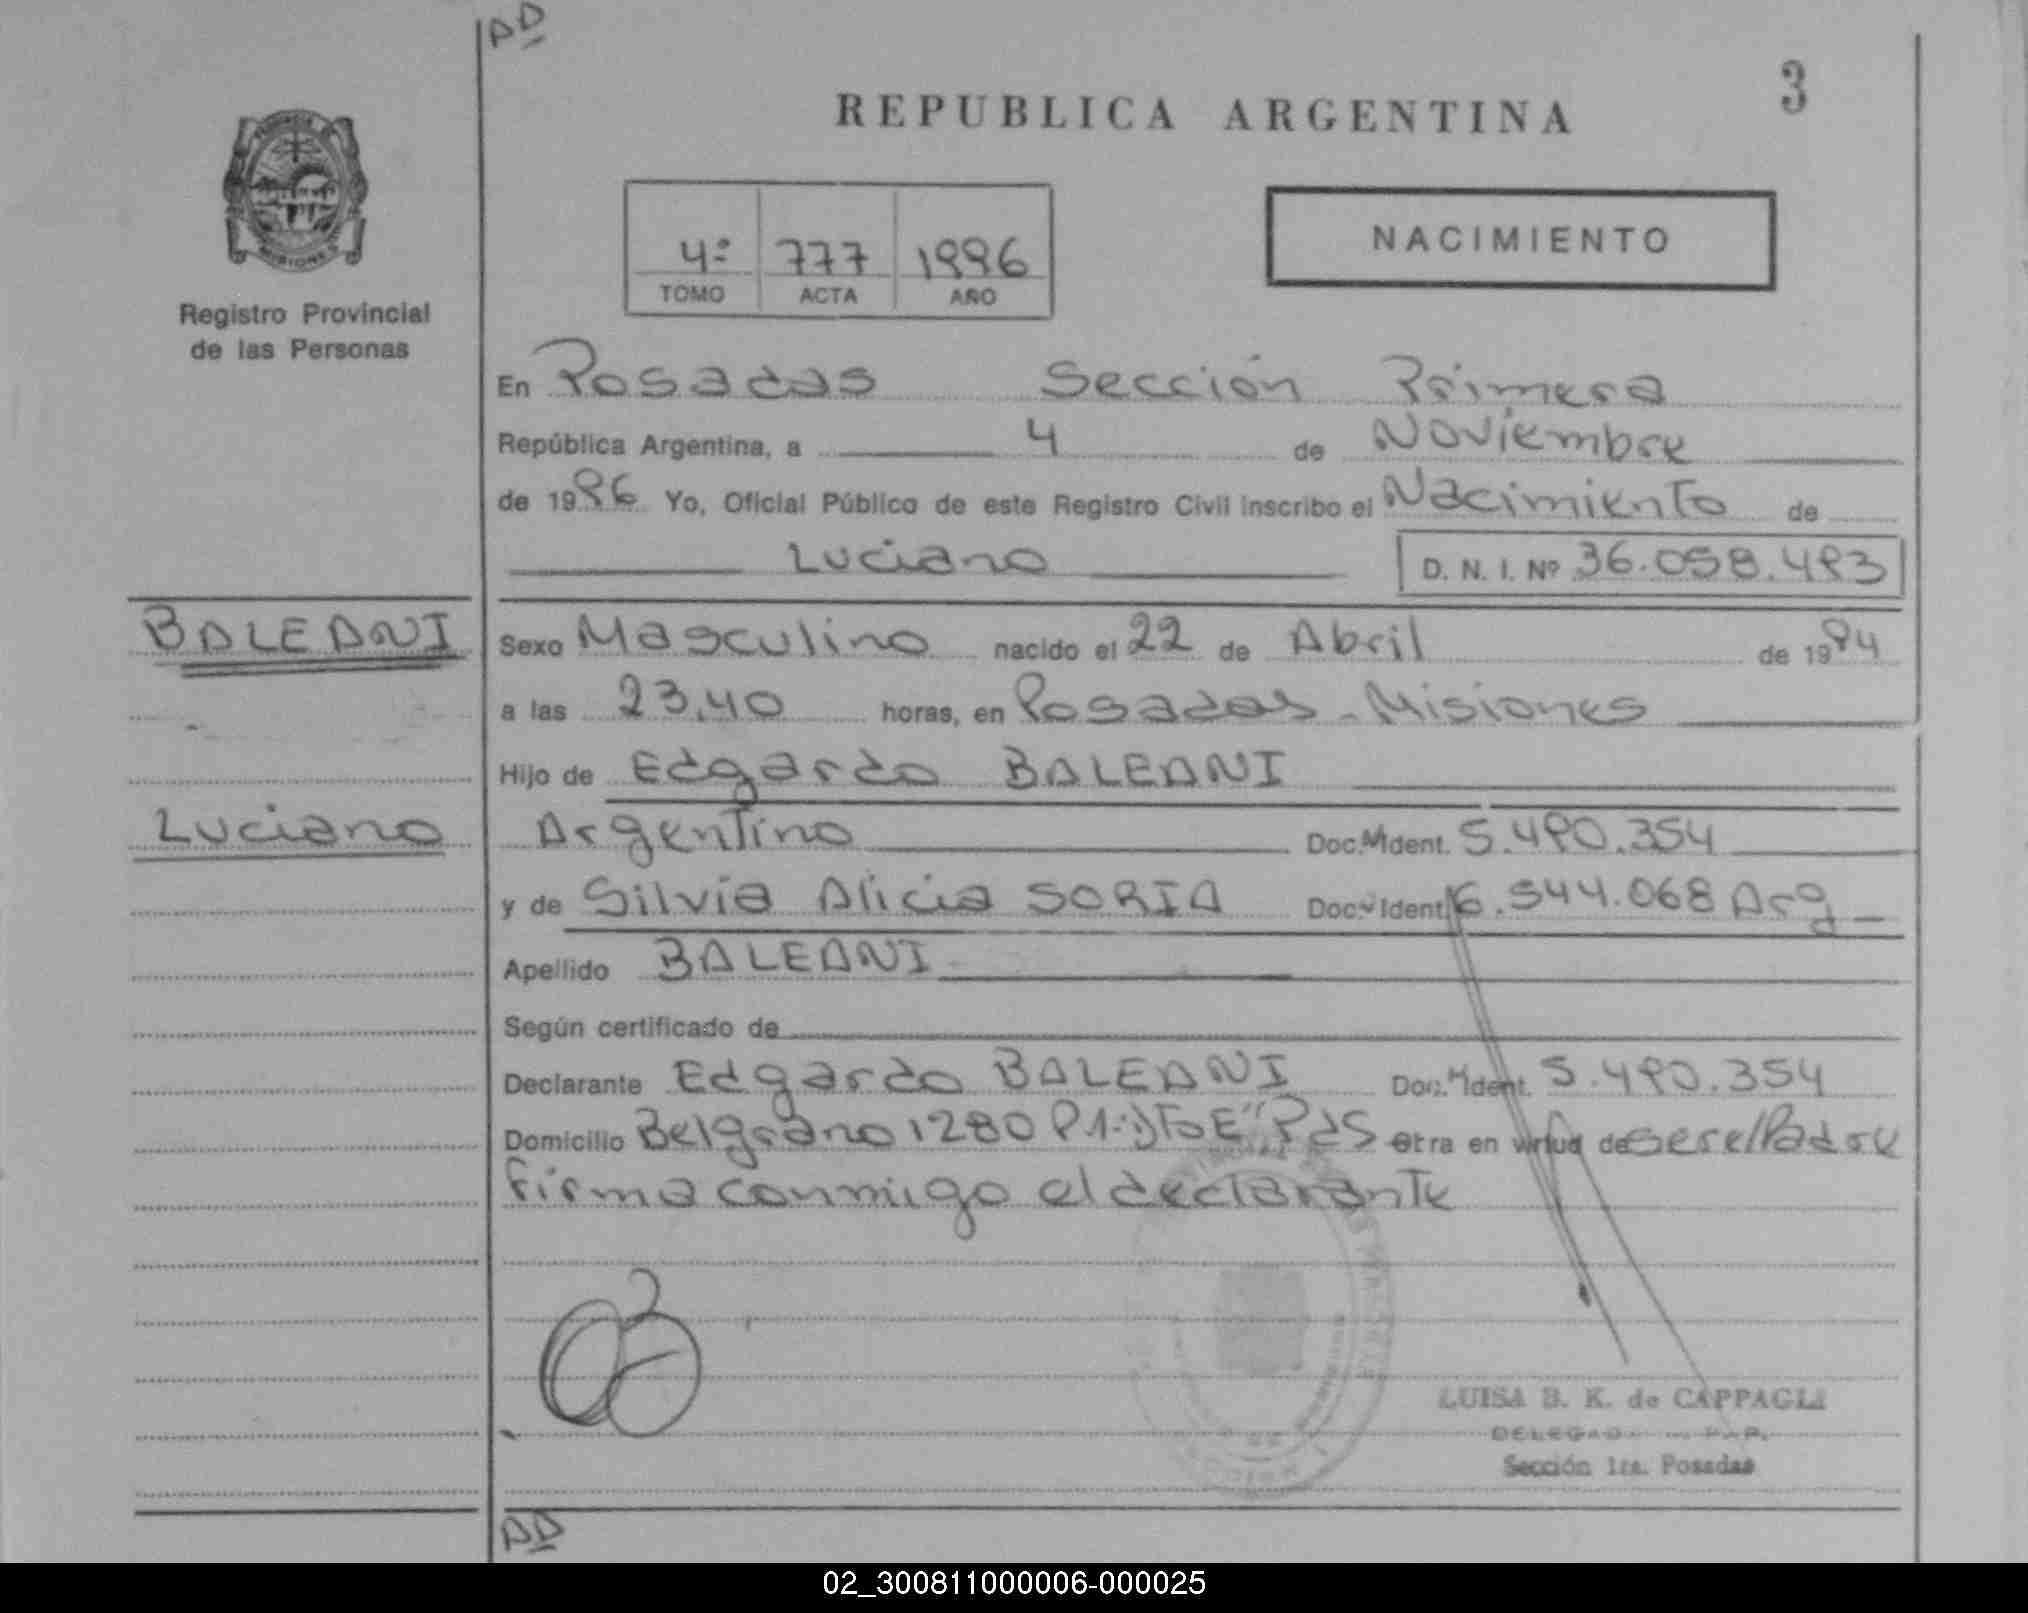 AD
REPUBLICA ARGENTINA
3
PROVINCIA DE
MISIONES
Registro Provincial
de las Personas
4º 777 1996
TOMO ACTA AÑO
NACIMIENTO
En Posadas Sección Primera
República Argentina, a 4 de Noviembre
de 1996 Yo, Oficial Público de este Registro Civil inscribo el Nacimiento de
Luciano D. N. I. Nº 36.058.493
BALEANI
Sexo Masculino nacido el 22 de Abril de 1994
a las 23,40 horas, en Posadas - Misiones
Hijo de Edgardo BALEANI
Luciano
Argentino Doc. M Ident. 5.490.354
y de Silvia Alicia SORIA Doc. Ident. 6.544.068 Arg
Apellido BALEANI
Según certificado de
Declarante Edgardo BALEANI Doc. M Ident. 5.490.354
Domicilio Belgrano 1280 P1-DToE" Pds Obra en virtud de ser el Padre
firma conmigo el declarante
LUISA B. K. de CAPPAGLI
Sección 1ra. Posadas
AD
02_300811000006-000025